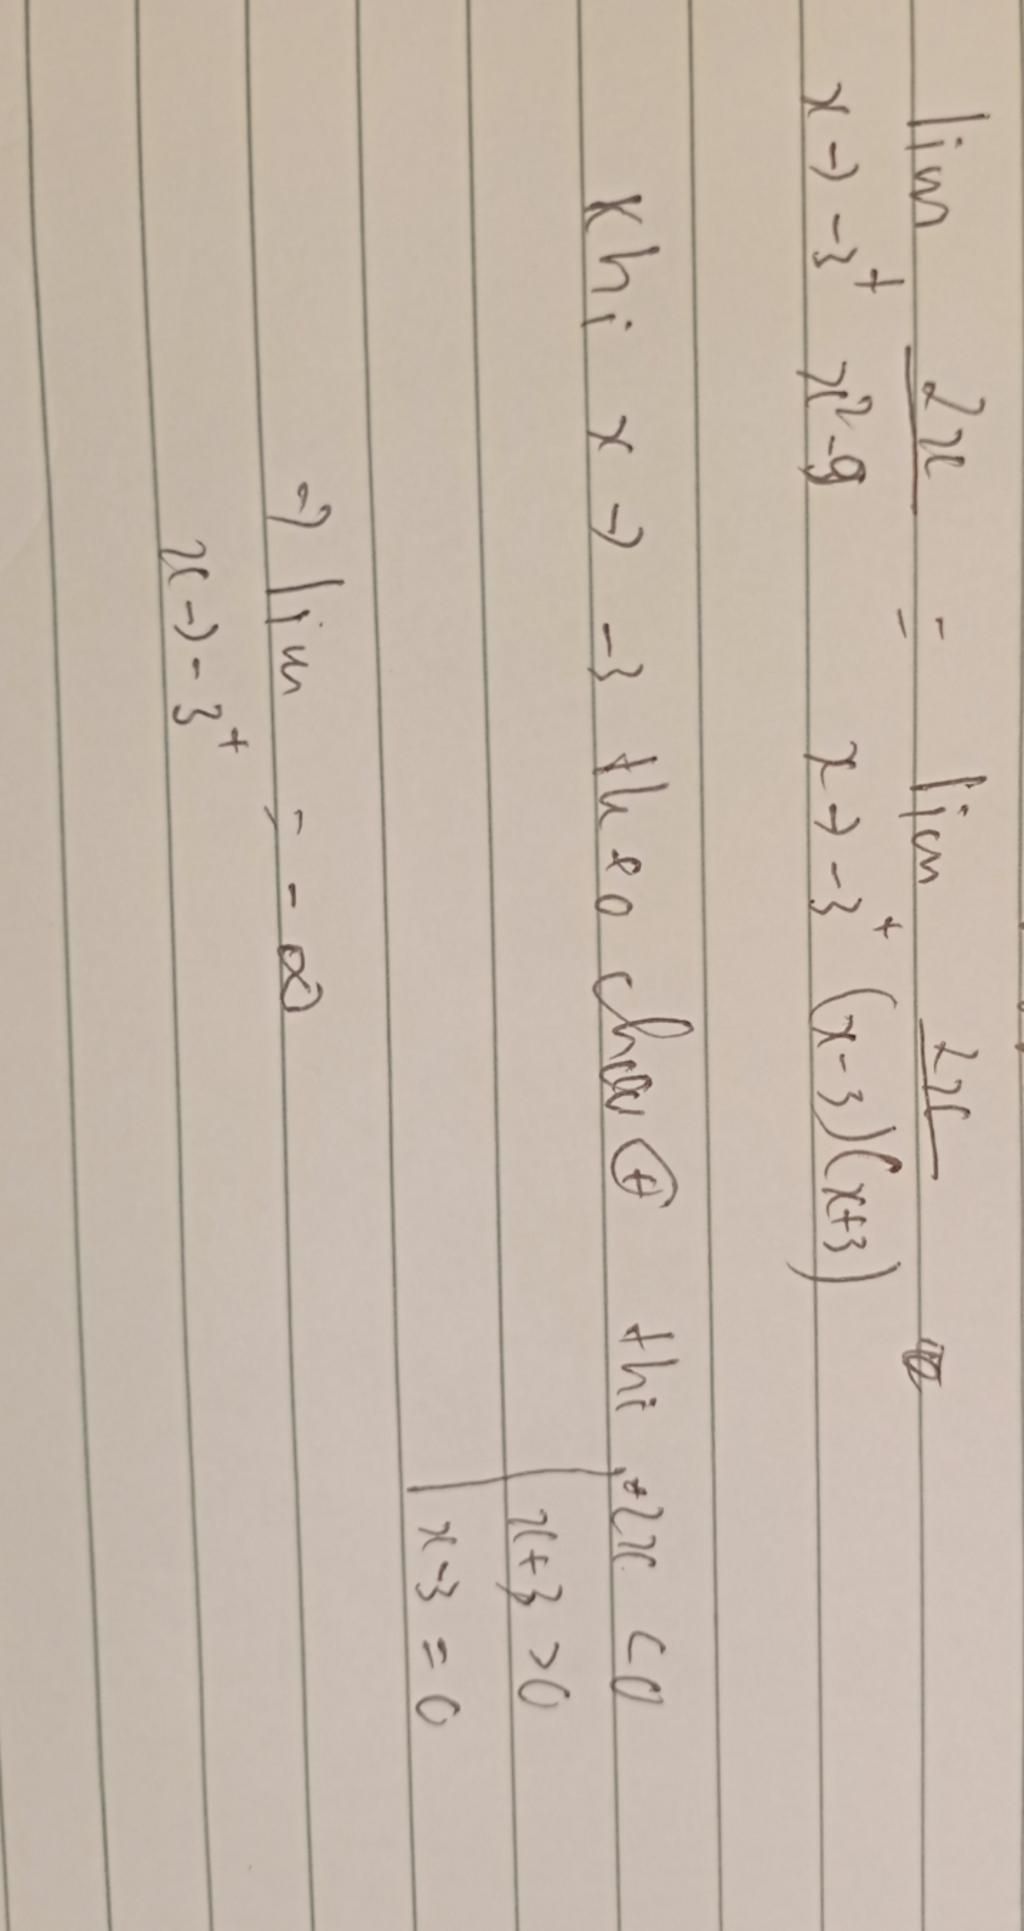 lim 2x = lim 2x
x→-3⁺ x²-9 x→-3⁺ (x-3)(x+3)
Khi x → -3 theo chiều ⊕ thì 2x < 0
x+3 > 0
x-3 = 0
→ lim = -∞
x→-3⁺